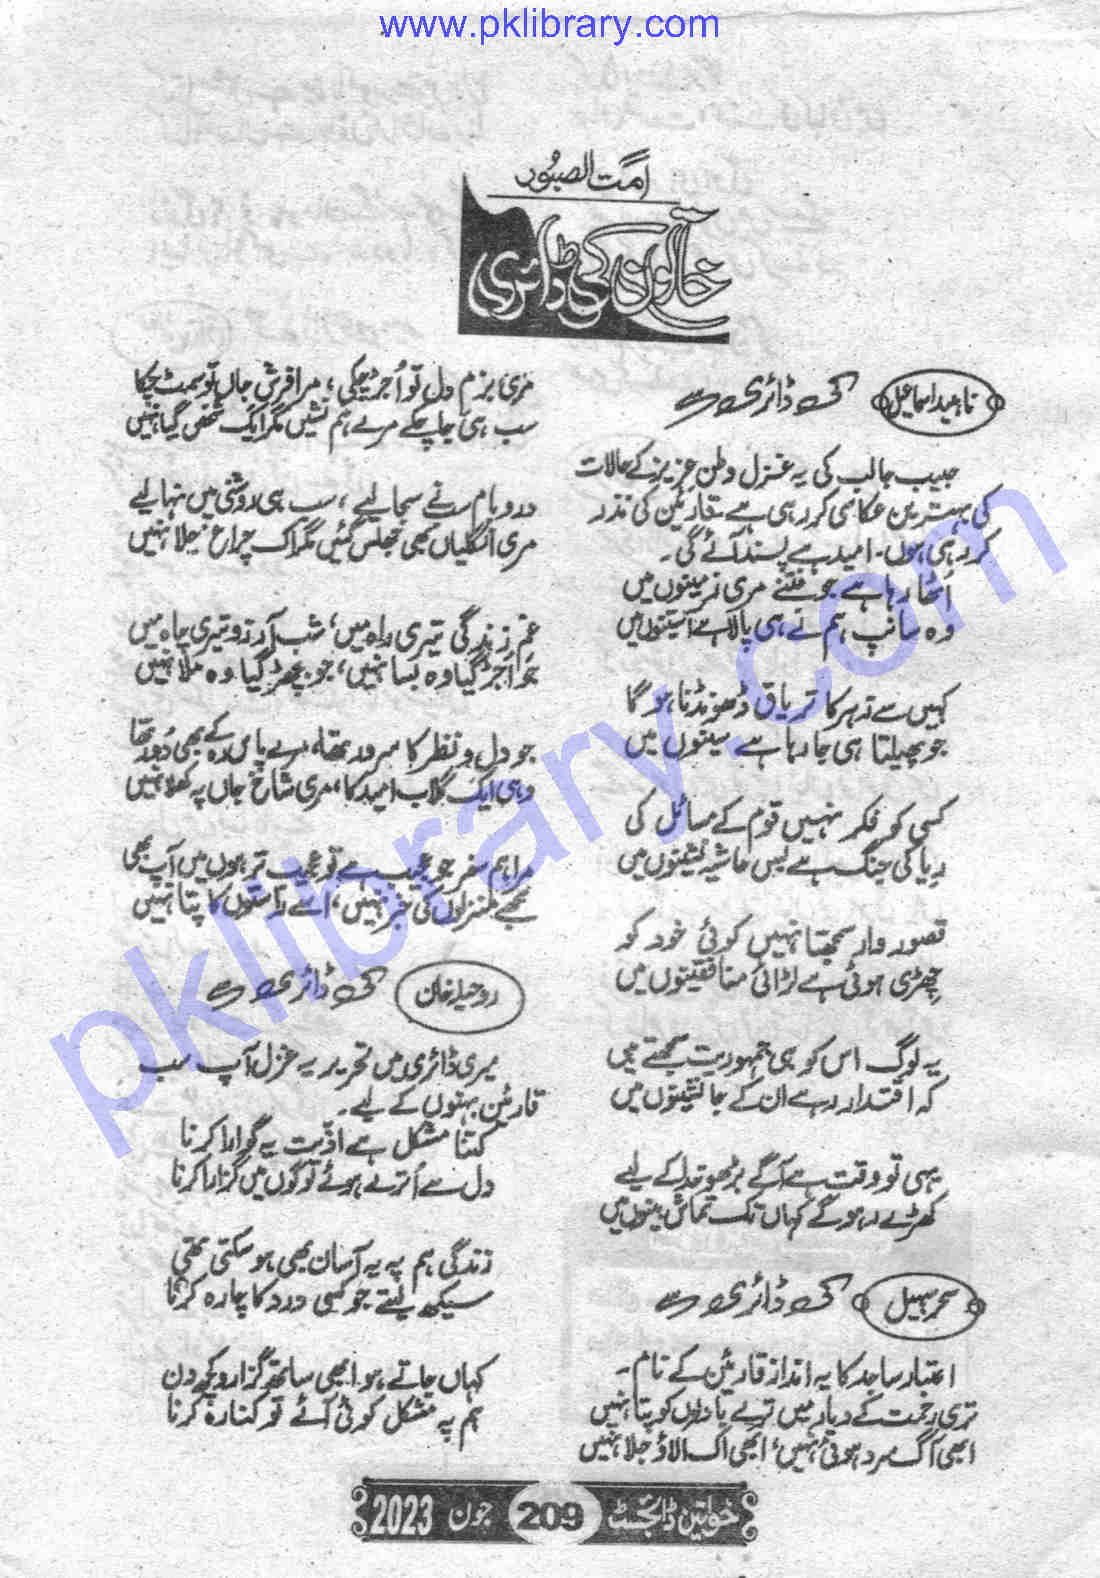 www.pklibrary.com
امت الصبور
خاتون کی ڈائری
ناہید اسماعیل کی ڈائری سے
حبیب جالب کی یہ غزل وطن عزیز کے حالات
کی بہترین عکاسی کر رہی ہے قارئین کی نذر
کر رہی ہوں۔ امید ہے پسند آئے گی۔
اُٹھا رہا ہے جو فتنے مری زمینوں میں
وہ سانپ ہم نے ہی پالا ہے آستینوں میں
کہیں سے زہر کا تریاق ڈھونڈنا ہو گا
جو پھیلتا ہی جا رہا ہے سینوں میں
کسی کو فکر نہیں قوم کے مسائل کی
ریا کی جنگ ہے بس حاشیہ نشینوں میں
قصور وار سمجھتا نہیں کوئی خود کو
چھڑی ہوئی ہے لڑائی منافقینوں میں
یہ لوگ اس کو ہی جمہوریت سمجھتے ہیں
کہ اقتدار رہے ان کے جانشینوں میں
یہی تو وقت ہے آگے بڑھو خدا کے لیے
کھڑے رہو گے کہاں تک تماش بینوں میں
سحر سہیل کی ڈائری سے
اعتبار ساجد کا یہ انداز قارئین کے نام۔
تری رحمت کے دیار میں ترے بادلوں کو پتا نہیں
ابھی آگ سرد ہوئی نہیں، ابھی اک الاؤ جلا نہیں
مری بزمِ دل تو اُجڑ چکی، مرا فرشِ جاں تو سمٹ چکا
سب ہی جا چکے مرے ہم نشیں مگر ایک شخص گیا نہیں
در و بام سب نے سجا لیے، سب ہی روشنی میں نہا لیے
مری انگلیاں بھی جھلس گئیں مگر اک چراغ جلا نہیں
غمِ زندگی تیری راہ میں، شبِ آرزو تیری چاہ میں
جو اُجڑ گیا وہ بسا نہیں، جو بچھڑ گیا وہ ملا نہیں
جو دل و نظر کا سرور تھا، مرے پاس رہ کے بھی دُور تھا
وہی ایک گلاب امید کا، مری شاخِ جاں پہ کھلا نہیں
مرا ہم سفر جو عجیب ہے تو عجیب تر ہوں میں آپ بھی
مجھے منزلوں کی خبر نہیں، اسے راستوں کا پتا نہیں
روحیلہ خان کی ڈائری سے
میری ڈائری میں تحریر یہ غزل آپ سب
قارئین بہنوں کے لیے۔
کتنا مشکل ہے اذیت یہ گوارا کرنا
دل سے اُترے ہوئے لوگوں میں گزارا کرنا
زندگی ہم پہ یہ آسان بھی ہو سکتی تھی
سیکھ لیتے جو کسی درد کا چارہ کرنا
کہاں جاتے ہو ابھی ساتھ گزارو کچھ دن
ہم پہ مشکل کوئی آئے تو کنارہ کرنا
خواتین ڈائجسٹ 209 جون 2023
pklibrary.com